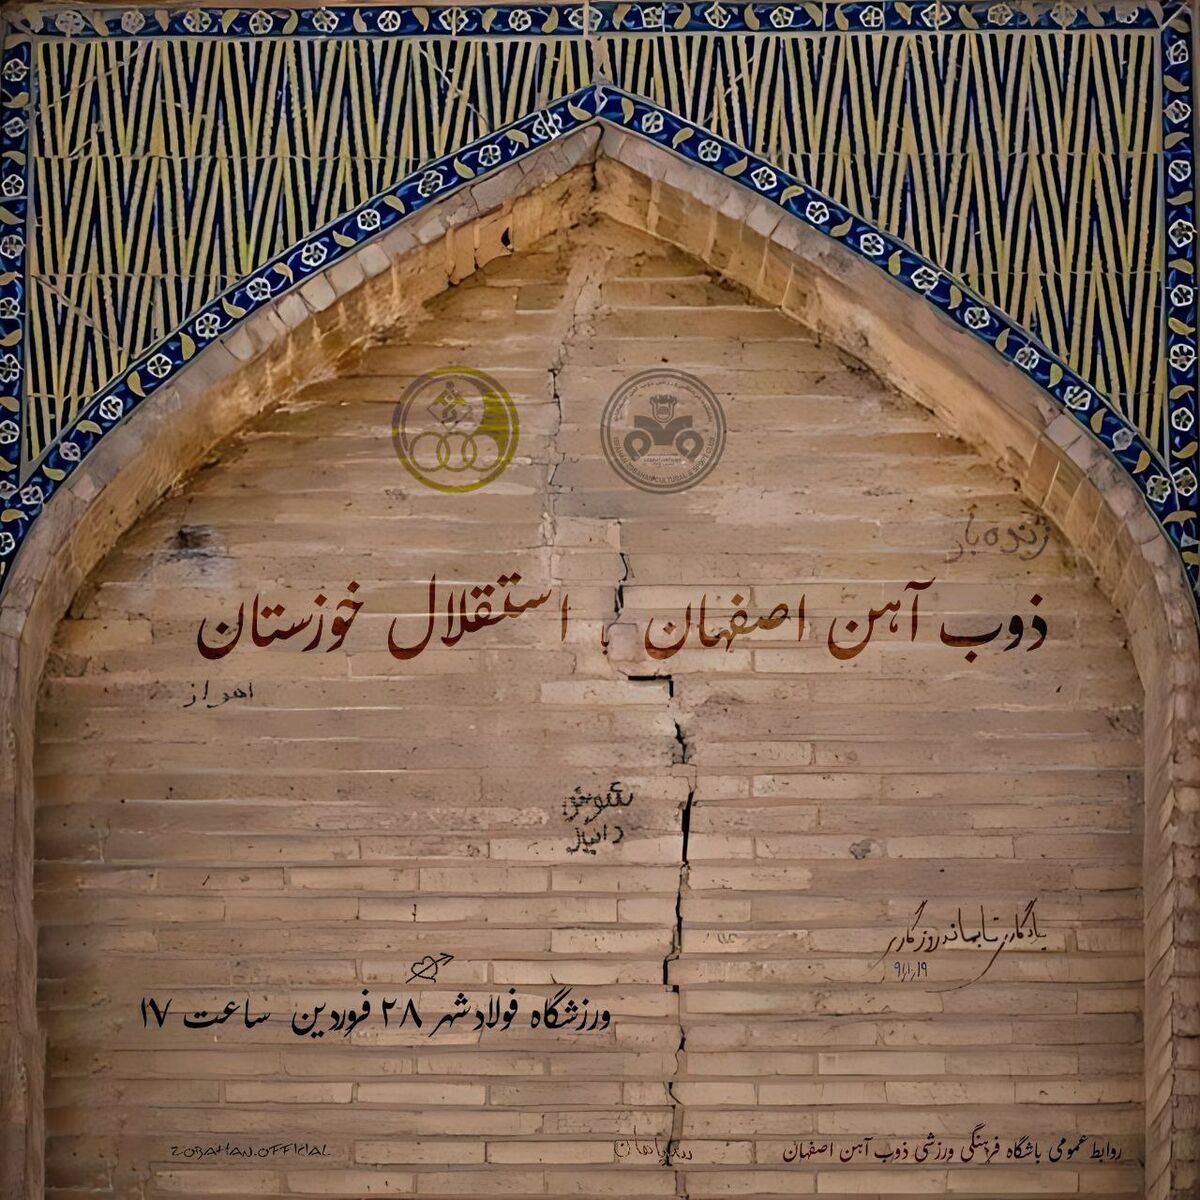 زنده باد
ذوب آهن اصفهان با استقلال خوزستان
اهواز
شوش
دانیال
یادگاری تا بماند روزگاری
ورزشگاه فولادشهر ۲۸ فروردین ساعت ۱۷
روابط عمومی باشگاه فرهنگی ورزشی ذوب آهن اصفهان
ZOBAHAN.OFFICIAL